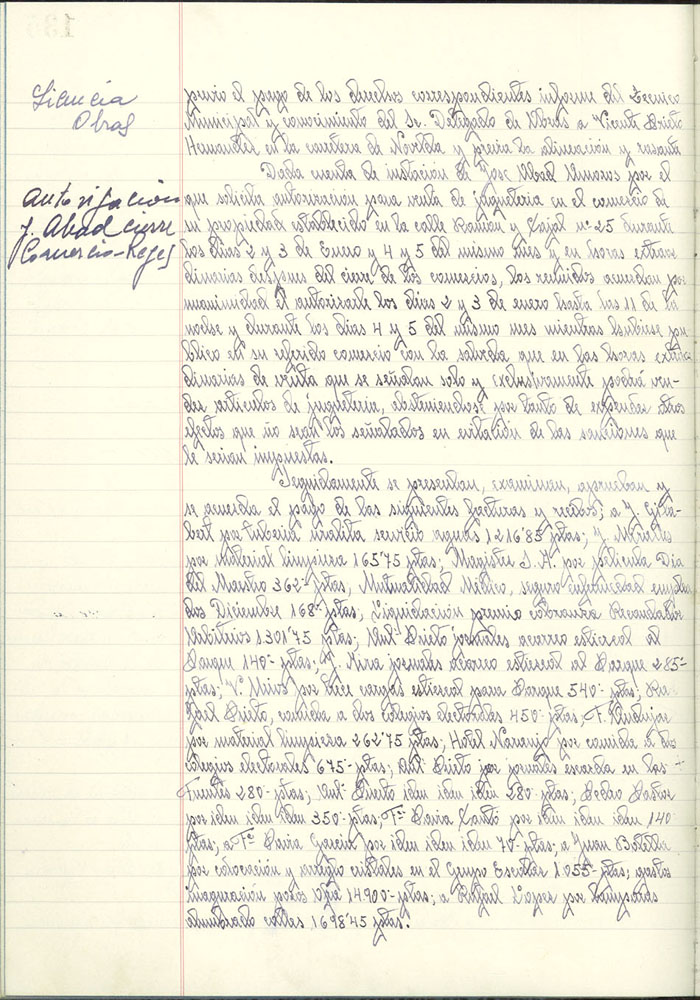 Licencia
Obras
previo el pago de los derechos correspondientes informe del Tecnico
Municipal y conocimiento del Sr. Delegado de Obras a Vicente Prieto
Hernandez en la carretera de Novelda y previa la alineación y rasante
Autorización
J. Abad cierre
Comercio-Reyes
Dada cuenta de instacion de Jose Abad Amoros por el
que solicita autorización para venta de jugueteria en el comercio de
su propiedad establecido en la calle Ramon y Cajal nº 25 durante
los dias 2 y 3 de Enero y 4 y 5 del mismo mes y en horas extraor
dinarias despues del cierre de los comercios, los reunidos acuerdan por
unanimidad el autorizarle los dias 2 y 3 de enero hasta las 11 de la
noche y durante los dias 4 y 5 del mismo mes mientras hubiese pu
blico en su referido comercio con la salveda que en las horas extraor
dinarias de venta que se señalan solo y exclusivamente podrá ven-
der articulos de jugueteria, absteniendose por tanto de expender otros
efectos que no sean los señalados en evitación de las sanciones que
le serian impuestas.
Seguidamente se presentan, examinan, aprueban y
se acuerda el pago de las siguientes facturas y recibos; a J.
por tuberia uralita servicio aguas 1216'85 ptas; J. Miralles
por material limpieza 165'75 ptas; Magister S.A. por pelicula Dia
del Maestro 362- ptas, Mutualidad Médico, seguro enfermedad emplea
dos Diciembre 168- ptas, Liquidación premio cobranza Recaudador
Arbitrios 1301'75 ptas; Antº Prieto jornales acarreo estiercol al
Parque 140- ptas; J. jornales acarreo estiercol al Parque 285-
ptas; Vº por trece cargas estiercol para Parque 540- ptas; Ra-
fael Prieto, comida a dos colegios electorales 450- ptas, Fº Andujar
por material limpieza 262'75 ptas; Hotel Naranjo por comida a dos
colegios electorales 675- ptas; Antº Prieto por jornales escarda en las
Fuentes 280- ptas; Antº idem idem idem 280 ptas; Pedro Pastor
por idem idem idem 350- ptas; Fº Cantó por idem idem idem 140
ptas; a Fº Garcia por idem idem idem 70- ptas; a Juan Botella
por colocación y arreglo cristales en el Grupo Escolar 1.055- ptas; gastos
inauguración pozos 14900- ptas; a Rafael Lopez por lamparas
alumbrado calles 1698'45 ptas.